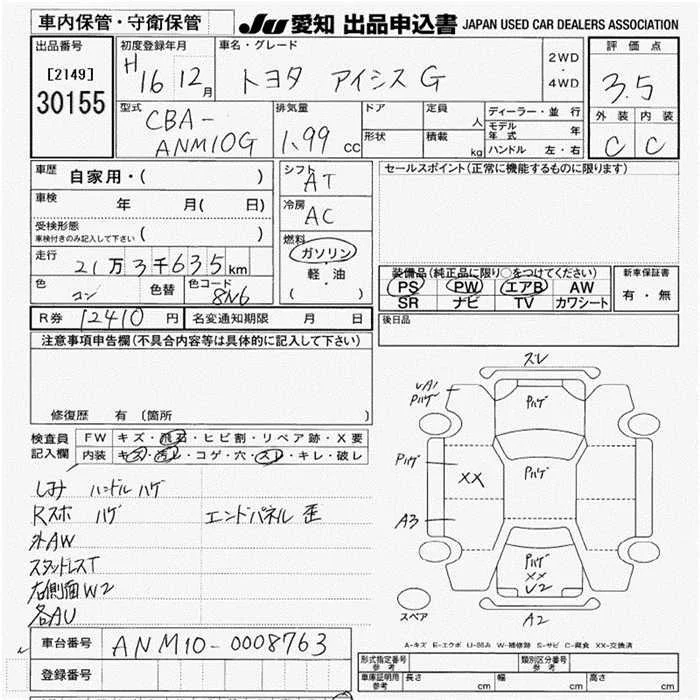 車内保管・守衛保管
JU 愛知 出品申込書 JAPAN USED CAR DEALERS ASSOCIATION
出品番号
[2149]
30155
初度登録年月
H 16 12月
車名・グレード
トヨタ アイシス G
2WD
・
4WD
評価点
3.5
外装 内装
C C
型式
CBA-
ANM10G
排気量
1.99 cc
ドア
定員 人
形状
積載 kg
ディーラー・並行
モデル年式 年
ハンドル 左・右
車歴
自家用・( )
車検 年 月( 日)
受検形態
車検付きのみ記入して下さい ( )
走行
21万3千635km
色 コン 色替 色コード 8N6
シフト
AT
冷房
AC
燃料
ガソリン
・
軽・油
( )
セールスポイント(正常に機能するものに限ります)
装備品(純正品に限り○をつけてください)
PS PW エアB AW
SR ナビ TV カワシート
新車保証書
有・無
R券 12410円 名変通知期限 月 日
後日品
注意事項申告欄(不具合内容等は具体的に記入して下さい)
修復歴 有 〔箇所 〕
検査員
記入欄
FW キズ・飛石・ヒビ割・リペア跡・X要
内装 キズ・汚レ・コゲ・穴・スレ・キレ・破レ
しみ ハンドル ハゲ
Rスポ ハゲ エンドパネル 歪
外AW
スタッドレスT
右側面W2
各AU
スレ
Pハゲ
Pハゲ
Pハゲ
XX
Pハゲ
A3
Pハゲ
XX
A2
スペア
A-キズ E-エクボ U-凹み W-補修跡 S-サビ C-腐食 XX-交換済
車台番号 ANM10-0008763
登録番号
形式指定番号
参考
類別区分番号
参考
車庫証明用
参考
長さ cm 幅 cm 高さ cm